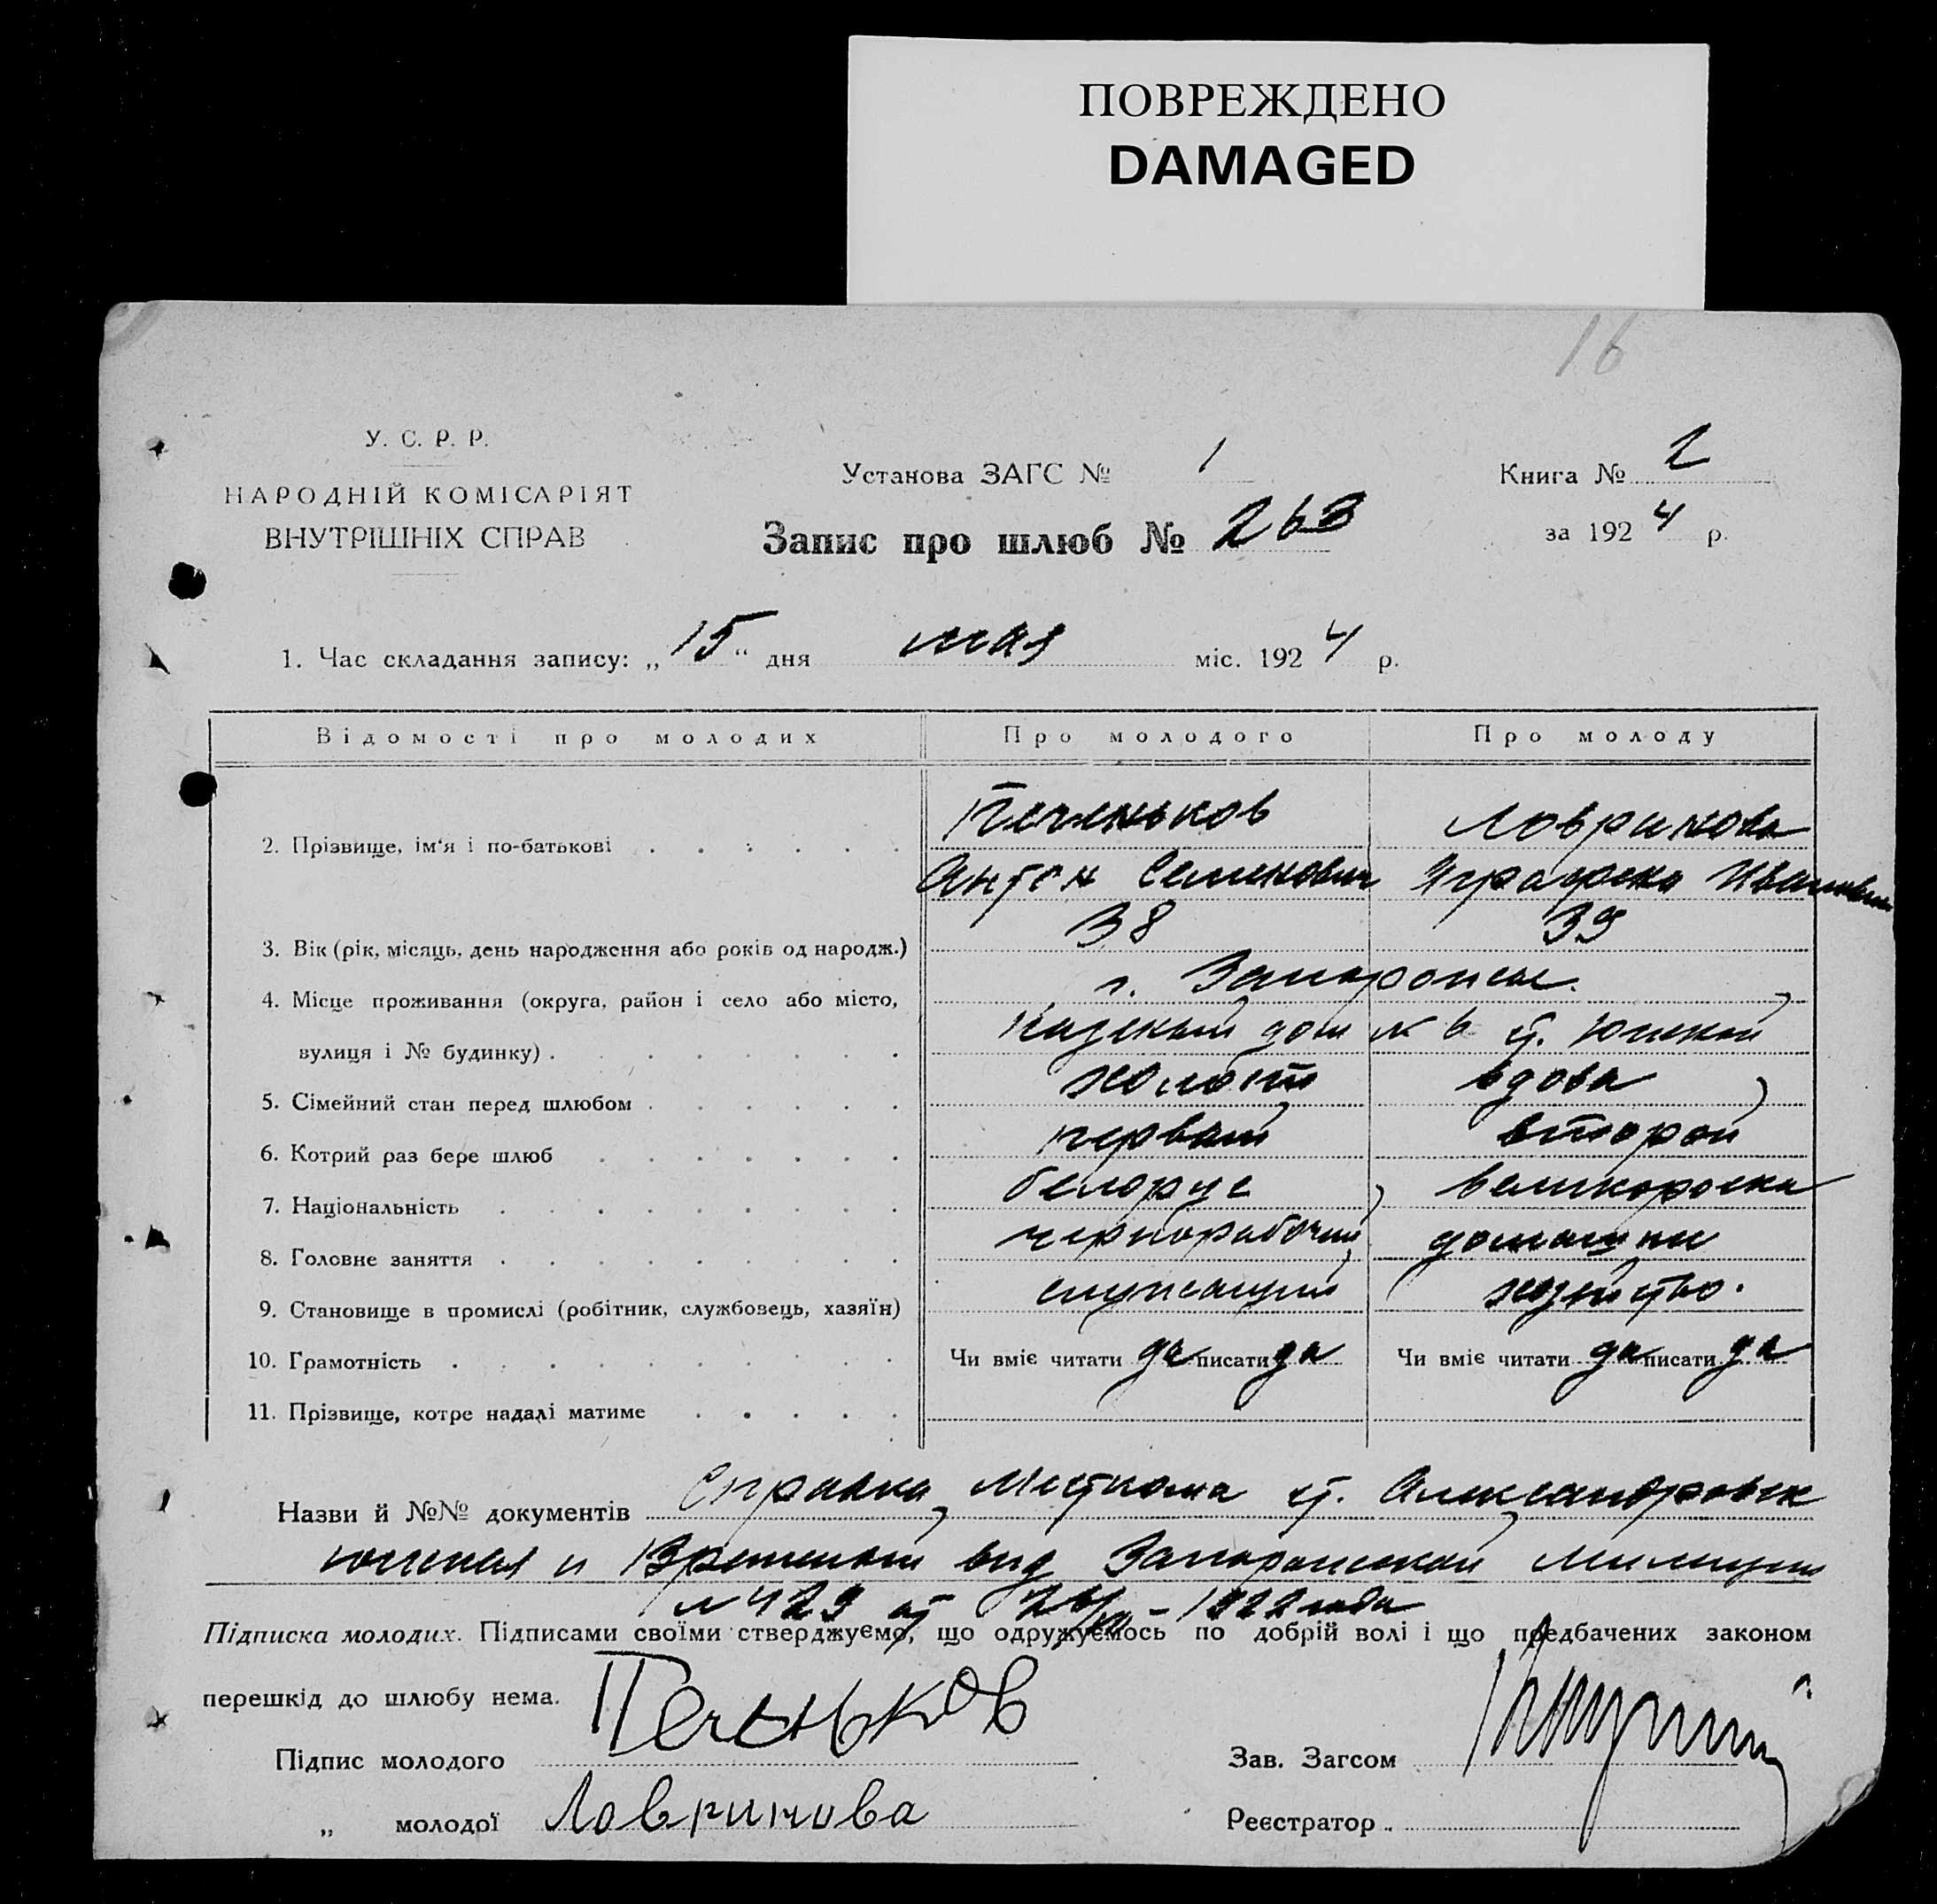 ПОВРЕЖДЕНО
DAMAGED
16
У. С. Р. Р.
НАРОДНІЙ КОМІСАРІЯТ
ВНУТРІШНІХ СПРАВ
Установа ЗАГС № 1
Запис про шлюб № 263
Книга № 2
за 1924 р.
1. Час складання запису: „15“ дня мая міс. 1924 р.
Відомості про молодих Про молодого Про молоду
2. Прізвище, ім‘я і по-батькові Печеньков Ловрикова
Антон Семенович Аграфена Ивановна
3. Вік (рік, місяць, день народження або років од народж.) 38 39
4. Місце проживання (округа, район і село або місто, г. Запорожье.
вулиця і № будинку) . Казеный дом № 6 ст. Южной
5. Сімейний стан перед шлюбом . холост вдова
6. Котрий раз бере шлюб первый второй
7. Національність белорус великороска
8. Головне заняття чернорабочий домашнее
9. Становище в промислі (робітник, службовець, хазяїн) служащий хозяйство.
10. Грамотність Чи вміє читати да писати да Чи вміє читати да писати да
11. Прізвище, котре надалі матиме
Назви й №№ документів Справка Месткома ст. Александровск
южная и Временый вид Запорожской Милиции
№ 429 от 24/ – 1922 года
Підписка молодих. Підписами своїми стверджуємо, що одружуємось по добрій волі і що предбачених законом
перешкід до шлюбу нема.
Підпис молодого Печеньков
Зав. Загсом
„ молодої Ловрикова
Реєстратор